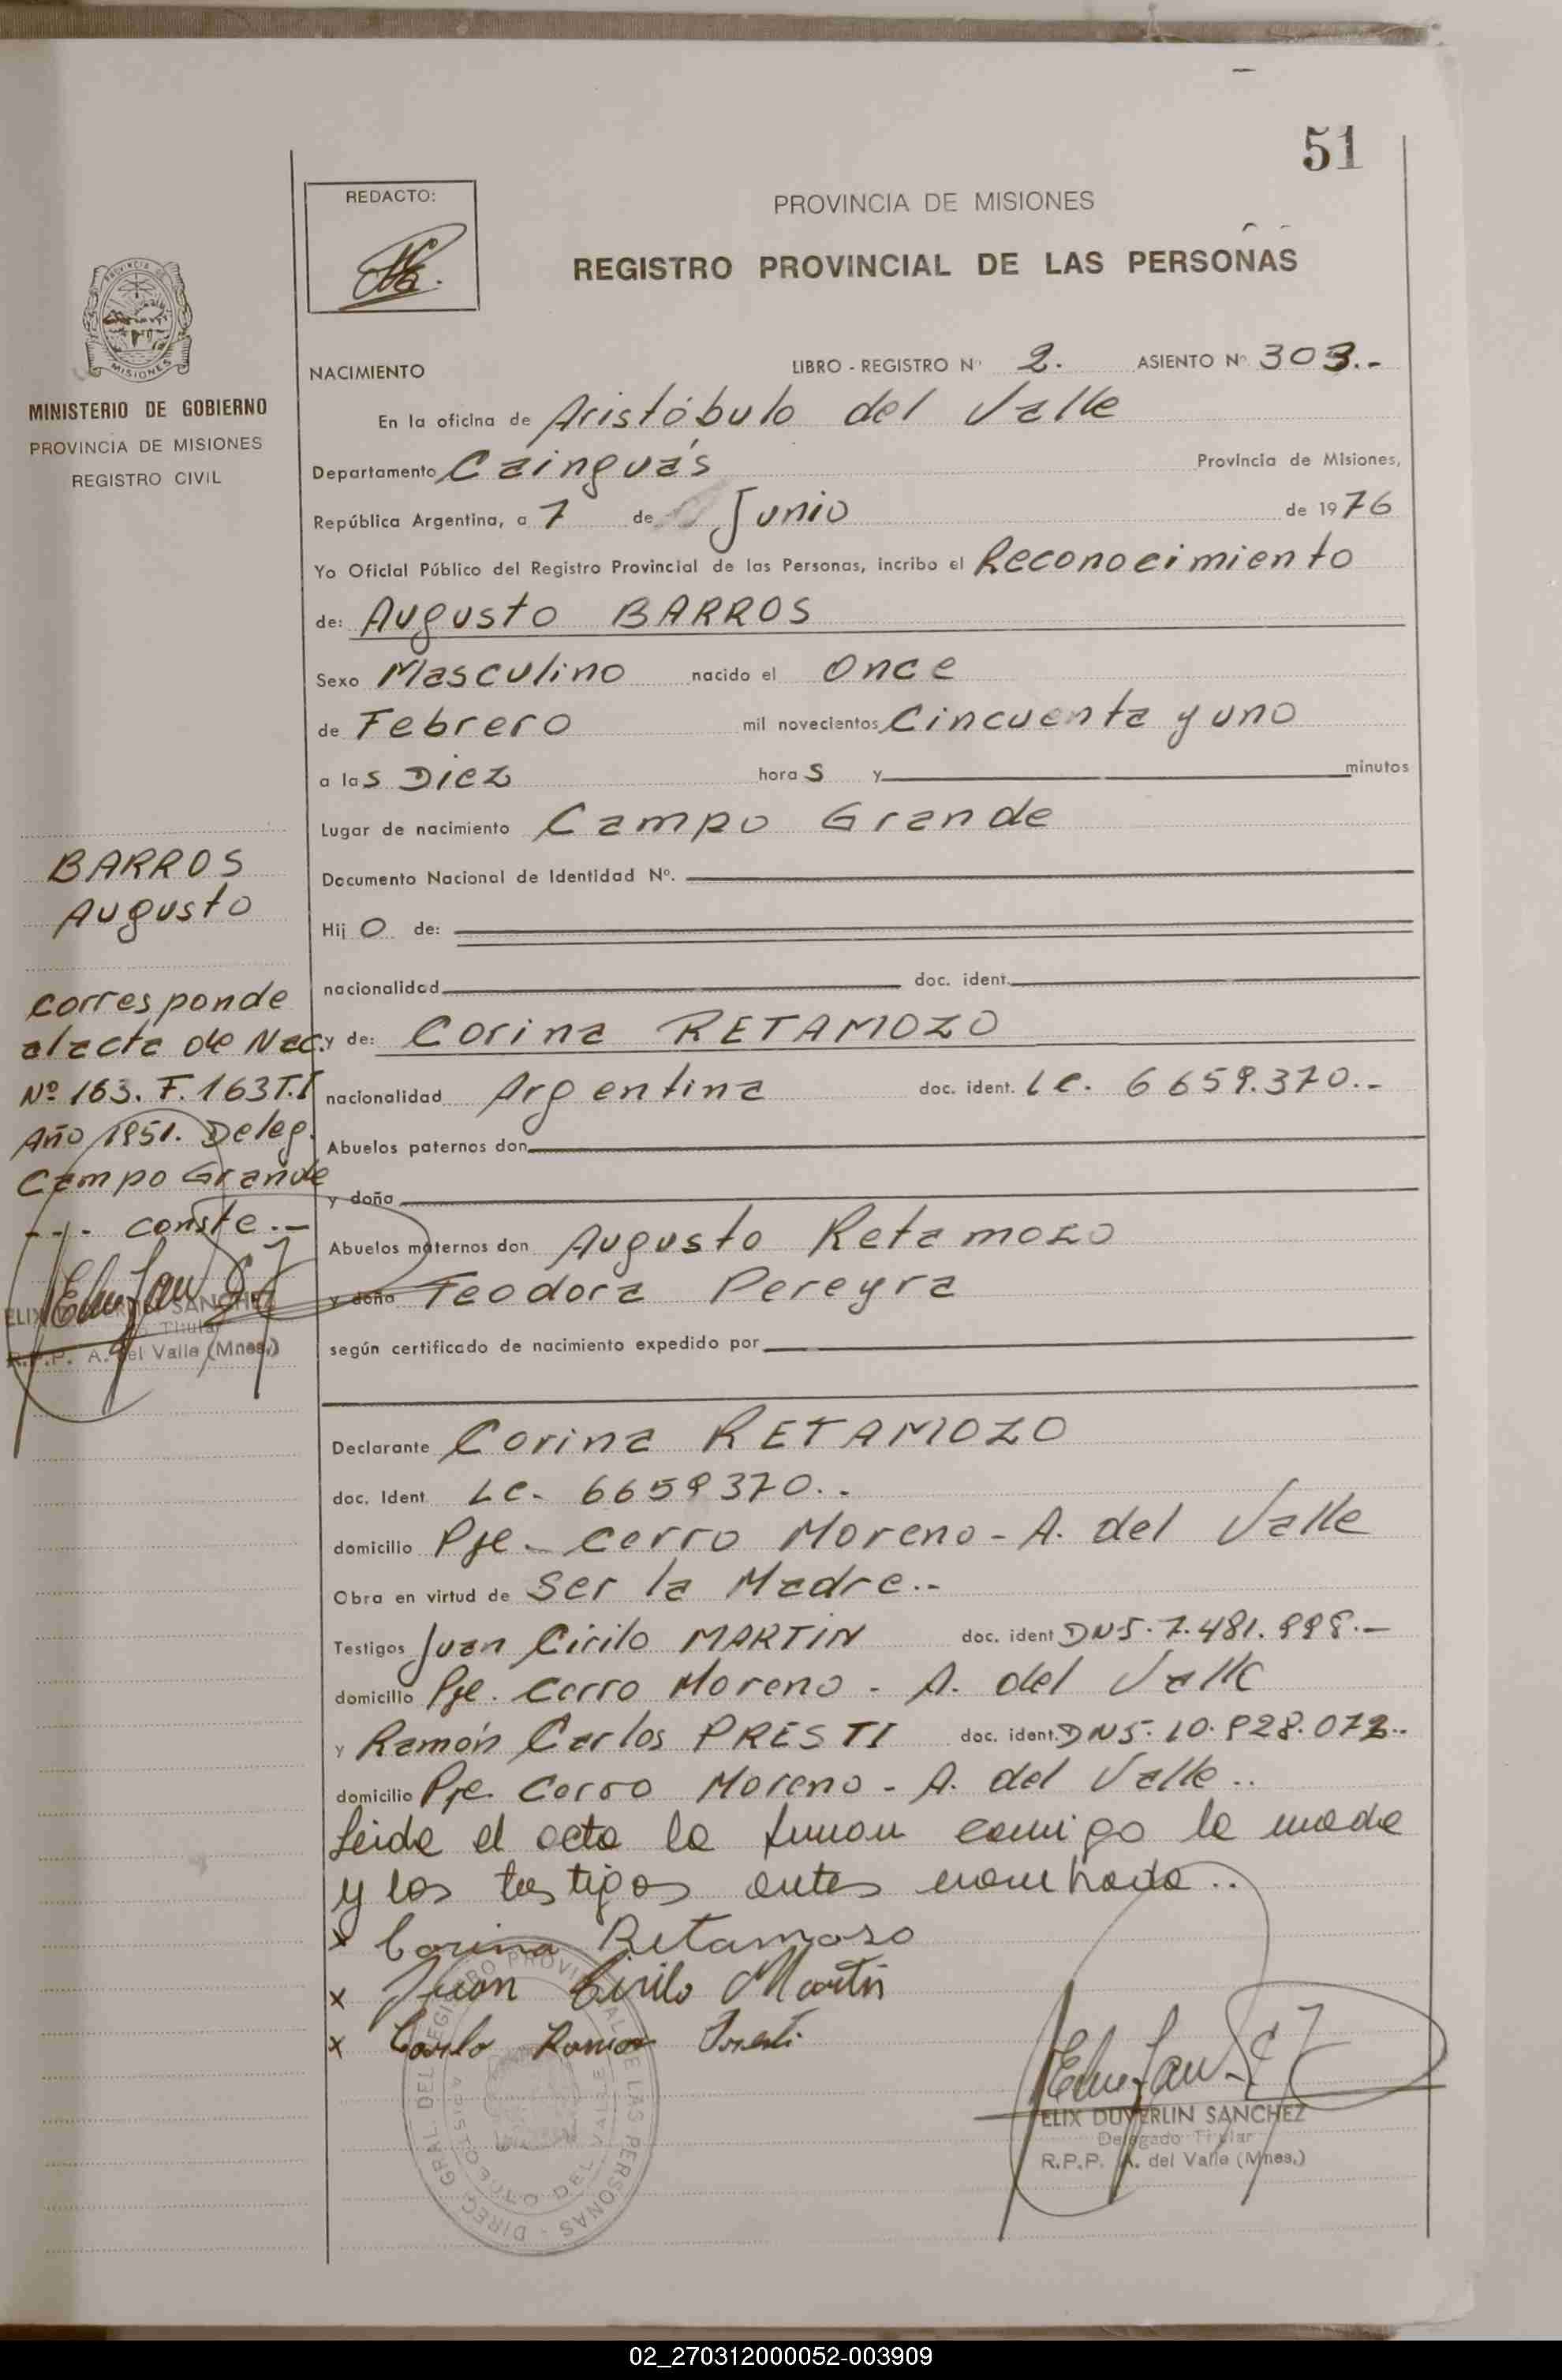 51
REDACTO:
PROVINCIA DE MISIONES
REGISTRO PROVINCIAL DE LAS PERSONAS
MISIONES
MINISTERIO DE GOBIERNO
PROVINCIA DE MISIONES
REGISTRO CIVIL
NACIMIENTO LIBRO - REGISTRO Nº 2. ASIENTO Nº 303.-
En la oficina de Aristóbulo del Valle
Departamento Cainguás Provincia de Misiones,
República Argentina, a 7 de Junio de 1976
Yo Oficial Público del Registro Provincial de las Personas, incribo el Reconocimiento
de: Augusto BARROS
Sexo Masculino nacido el Once
de Febrero mil novecientos Cincuenta y uno
a las Diez horas y minutos
Lugar de nacimiento Campo Grande
Documento Nacional de Identidad Nº.
Hijo de:
nacionalidad doc. ident.
y de: Corina RETAMOZO
nacionalidad Argentina doc. ident. LC. 6659.370.-
Abuelos paternos don
y doña
Abuelos maternos don Augusto Retamozo
y doña Teodora Pereyra
según certificado de nacimiento expedido por
Declarante Corina RETAMOZO
doc. Ident LC. 6659370..
domicilio Pje. Cerro Moreno - A. del Valle
Obra en virtud de Ser la Madre.-
Testigos Juan Cirilo MARTIN doc. ident DN5. 7.481.998.-
domicilio Pje. Cerro Moreno - A. del Valle
y Ramón Carlos PRESTI doc. ident. DN5. 10.928.072..
domicilio Pje. Cerro Moreno - A. del Valle..
Leida el acta la firman conmigo la madre
y los testigos antes nombrado..
x Corina Retamozo
x Juan Cirilo Martin
x Carlo Ramon Presti
BARROS
Augusto
Corresponde
al acta de Nac.
Nº 163. F. 163 T.I
Año 1951. Deleg.
Campo Grande
--.- conste.-
ELIX DUVERLIN SANCHEZ
Titular
R.P.P. A. del Valle (Mnes.)
ELIX DUVERLIN SANCHEZ
Delegado Titular
R.P.P. A. del Valle (Mnes.)
DIREC. GRAL DEL REGISTRO PROVINCIAL DE LAS PERSONAS
02_270312000052-003909